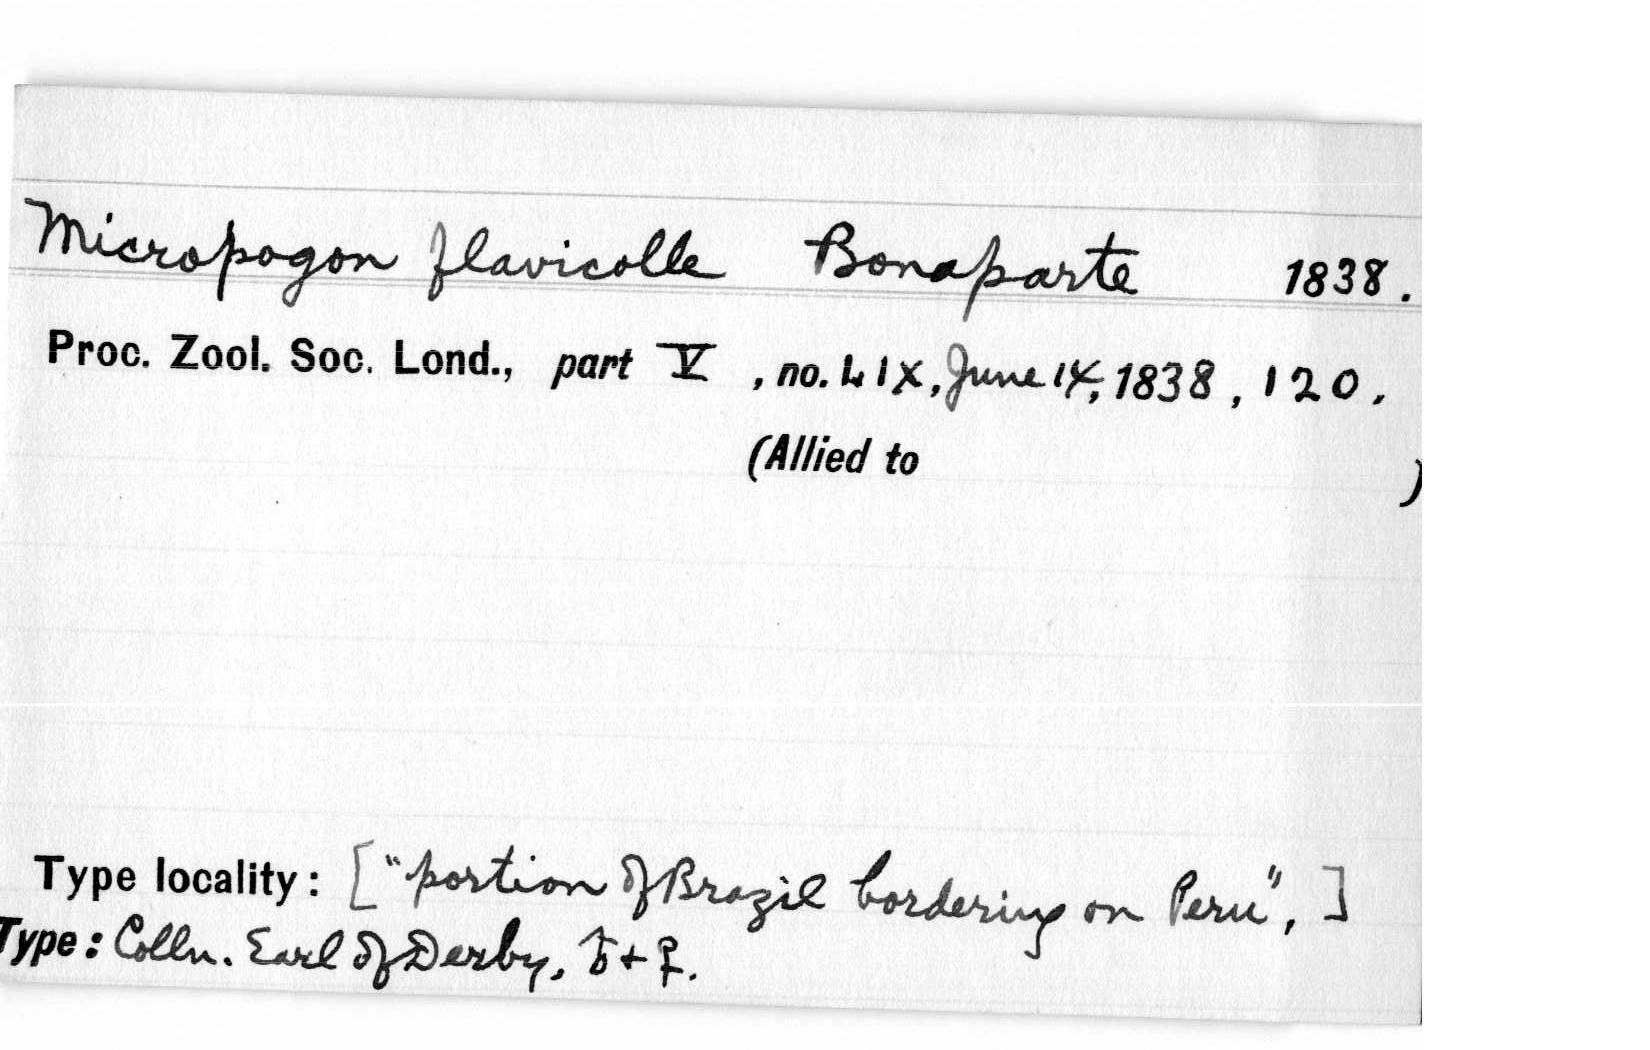 Micropogon flavicolle Bonaparte 1838.
Proc. Zool. Soc. Lond., part V, no. LIX, June 14, 1838, 120.
(Allied to )
Type locality: ["portion of Brazil bordering on Peru", ]
Type: Colln. Earl of Derby, ♂ + ♀.